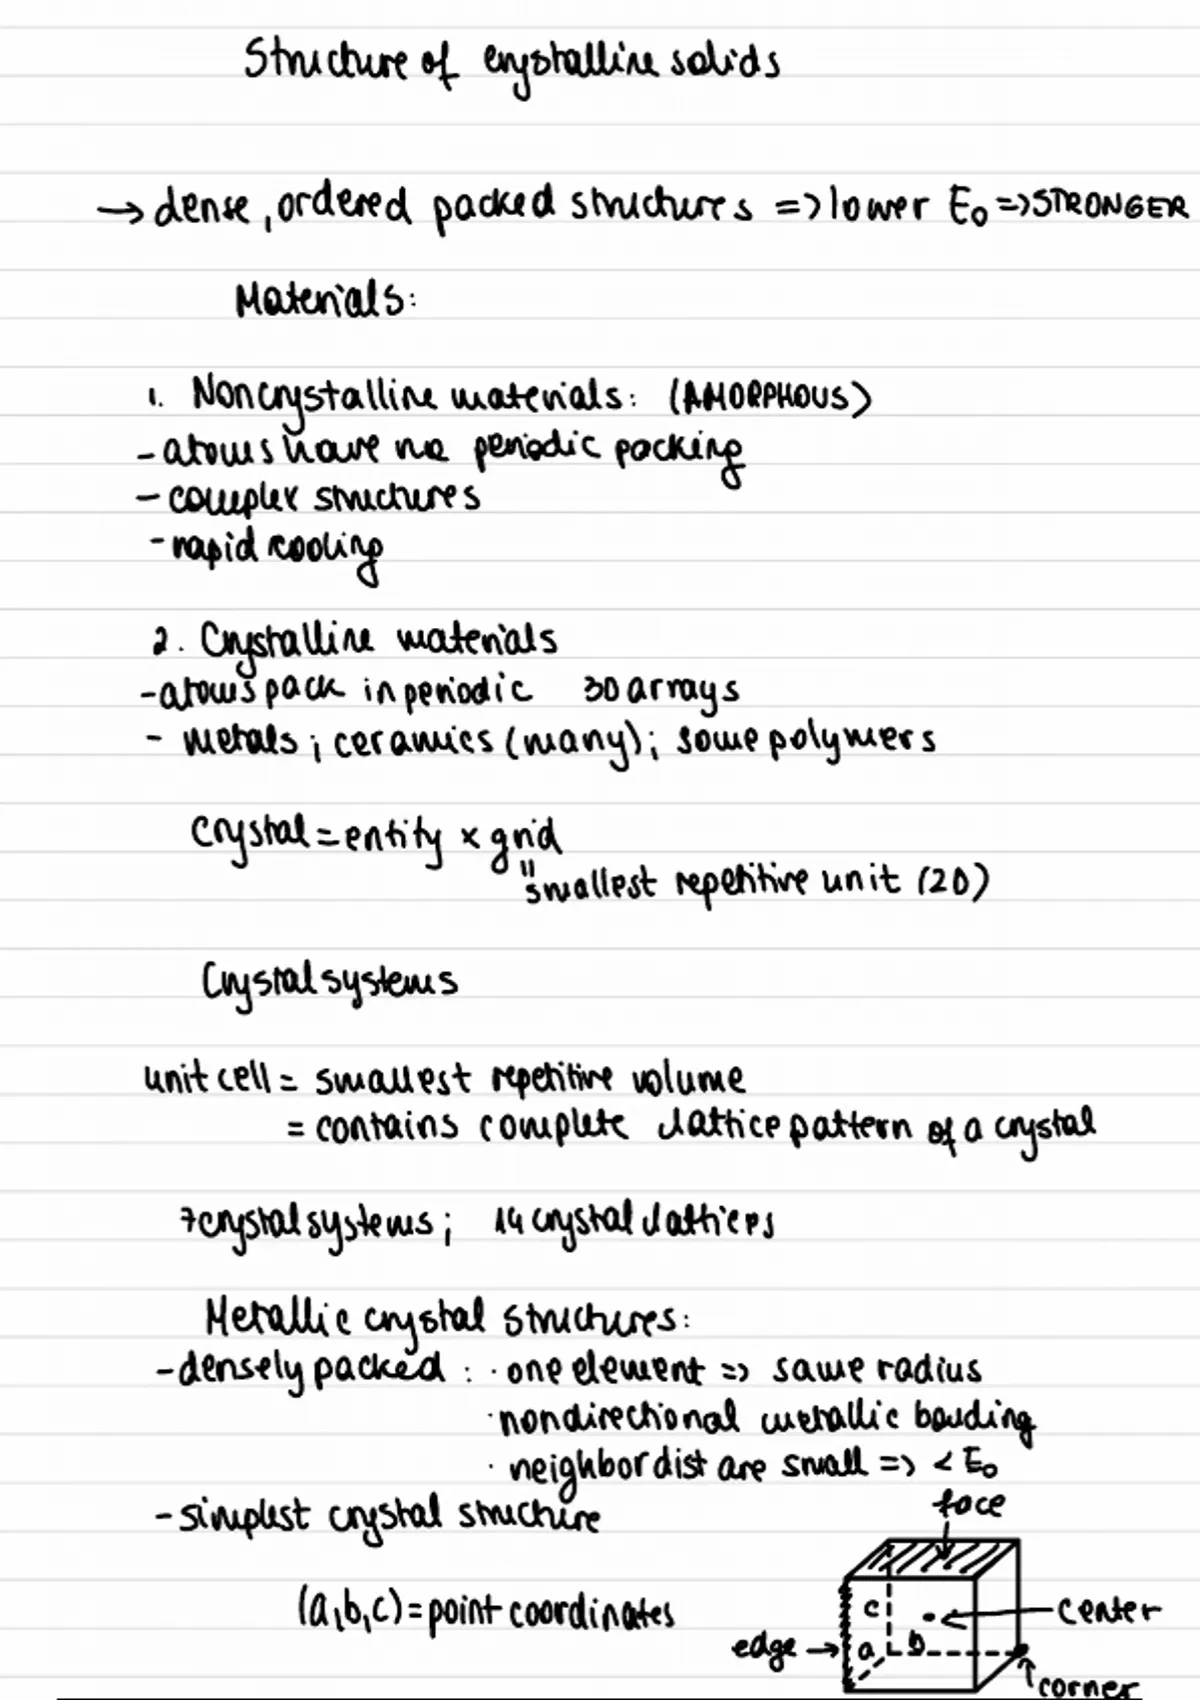 Structure of crystalline solids
→ dense, ordered packed structures => lower E₀ => STRONGER
Materials:
1. Noncrystalline materials: (AMORPHOUS)
- atoms have no periodic packing
- complex structures
- rapid cooling
2. Crystalline materials
- atoms pack in periodic 3D arrays
- metals; ceramics (many); some polymers
Crystal = entity × grid
" smallest repetitive unit (2D)
Crystal systems
unit cell = smallest repetitive volume
= contains complete lattice pattern of a crystal
7 crystal systems; 14 crystal lattices
Metallic crystal structures:
- densely packed: · one element => same radius
· nondirectional metallic bonding
· neighbor dist are small => < E₀
- simplest crystal structure
face
(a,b,c) = point coordinates
c
center
edge → a b
corner